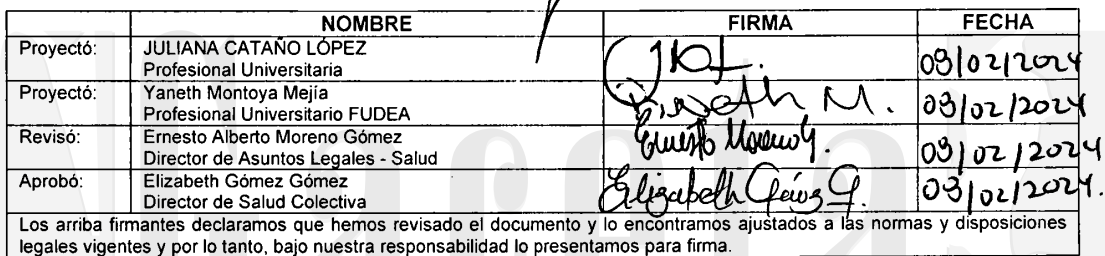 NOMBRE FIRMA FECHA
Proyectó: JULIANA CATAÑO LÓPEZ
Profesional Universitaria 09/02/2024
Proyectó: Yaneth Montoya Mejía
Profesional Universitario FUDEA Yaneth M. 09/02/2024
Revisó: Ernesto Alberto Moreno Gómez
Director de Asuntos Legales - Salud Ernesto Moreno G. 09/02/2024
Aprobó: Elizabeth Gómez Gómez
Director de Salud Colectiva Elizabeth Gómez G. 09/02/2024.
Los arriba firmantes declaramos que hemos revisado el documento y lo encontramos ajustados a las normas y disposiciones
legales vigentes y por lo tanto, bajo nuestra responsabilidad lo presentamos para firma.